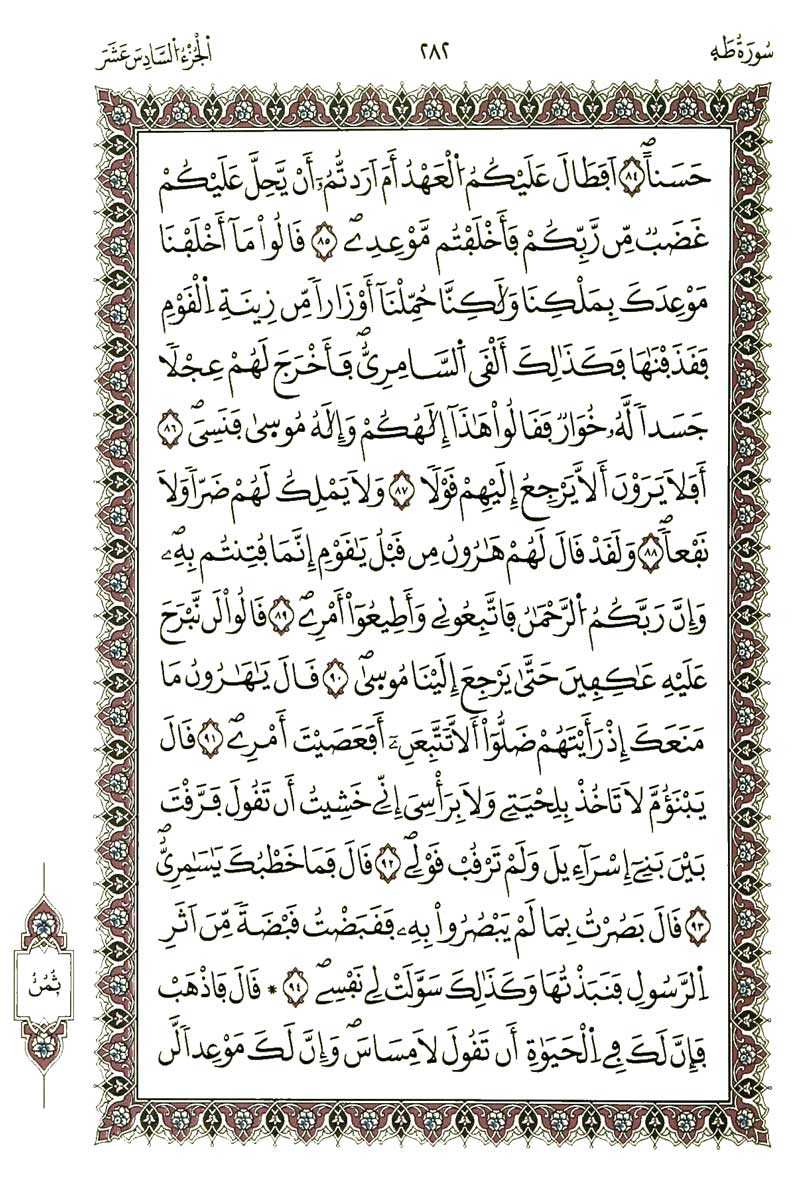 سُورَةُ طَهِ
٢٨٢
اَلْجُزْءُ اُلسَّادِسَ عَشَرَ
حَسَناًۖ ﴿٨٤﴾ اَفَطَالَ عَلَيْكُمُ اُلْعَهْدُ أَمَ اَرَدتُّمُۥٓ أَنْ يَّحِلَّ عَلَيْكُمْ
غَضَبٞ مِّن رَّبِّكُمْ فَأَخْلَفْتُم مَّوْعِدِےۖ ﴿٨٥﴾ قَالُواْ مَآ أَخْلَفْنَا
مَوْعِدَكَ بِمَلْكِنَا وَلَٰكِنَّا حُمِّلْنَآ أَوْزَاراٗ مِّن زِينَةِ اِ۬لْقَوْمِ
فَقَذَفْنَٰهَا فَكَذَٰلِكَ أَلْقَى اَ۬لسَّامِرِيُّۖ فَأَخْرَجَ لَهُمْ عِجْلاٗ
جَسَداٗ لَّهُۥ خُوَارٞ فَقَالُواْ هَٰذَآ إِلَٰهُكُمْ وَإِلَٰهُ مُوسۭيٰ فَنَسِيَۖ ﴿٨٦﴾
أَفَلَا يَرَوْنَ أَلَّا يَرْجِعُ إِلَيْهِمْ قَوْلاٗ ﴿٨٧﴾ وَلَا يَمْلِكُ لَهُمْ ضَرّاٗ وَلَا
نَفْعاٗۖ ﴿٨٨﴾ وَلَقَدْ قَالَ لَهُمْ هَٰرُونُ مِن قَبْلُ يَٰقَوْمِ إِنَّمَا فُتِنتُم بِهِۦۖ
وَإِنَّ رَبَّكُمُ اُ۬لرَّحْمَٰنُ فَاتَّبِعُونِے وَأَطِيعُوٓاْ أَمْرِےۖ ﴿٨٩﴾ قَالُواْ لَن نَّبْرَحَ
عَلَيْهِ عَٰكِفِينَ حَتَّىٰ يَرْجِعَ إِلَيْنَا مُوسۭيٰۖ ﴿٩٠﴾ قَالَ يَٰهَٰرُونُ مَا
مَنَعَكَ إِذْ رَأَيْتَهُمْ ضَلُّوٓاْ أَلَّا تَتَّبِعَنِۦٓ أَفَعَصَيْتَ أَمْرِےۖ ﴿٩١﴾ قَالَ
يَبْنَؤُمَّ لَا تَاخُذْ بِلِحْيَتِے وَلَا بِرَأْسِيَ إِنِّے خَشِيتُ أَن تَقُولَ فَرَّقْتَ
بَيْنَ بَنِےٓ إِسْرَآءِيلَ وَلَمْ تَرْقُبْ قَوْلِےۖ ﴿٩٢﴾ قَالَ فَمَا خَطْبُكَ يَٰسَٰمِرِيُّۖ
﴿٩٣﴾ قَالَ بَصُرْتُ بِمَا لَمْ يَبْصُرُواْ بِهِۦ فَقَبَضْتُ قَبْضَةٗ مِّنَ اَثَرِ
اِ۬لرَّسُولِ فَنَبَذْتُهَا وَكَذَٰلِكَ سَوَّلَتْ لِے نَفْسِےۖ ﴿٩٤﴾ * قَالَ فَاذْهَبْ
فَإِنَّ لَكَ فِے اِ۬لْحَيَوٰةِ أَن تَقُولَ لَا مِسَاسَۖ وَإِنَّ لَكَ مَوْعِداٗ لَّن
ثُمُنُ